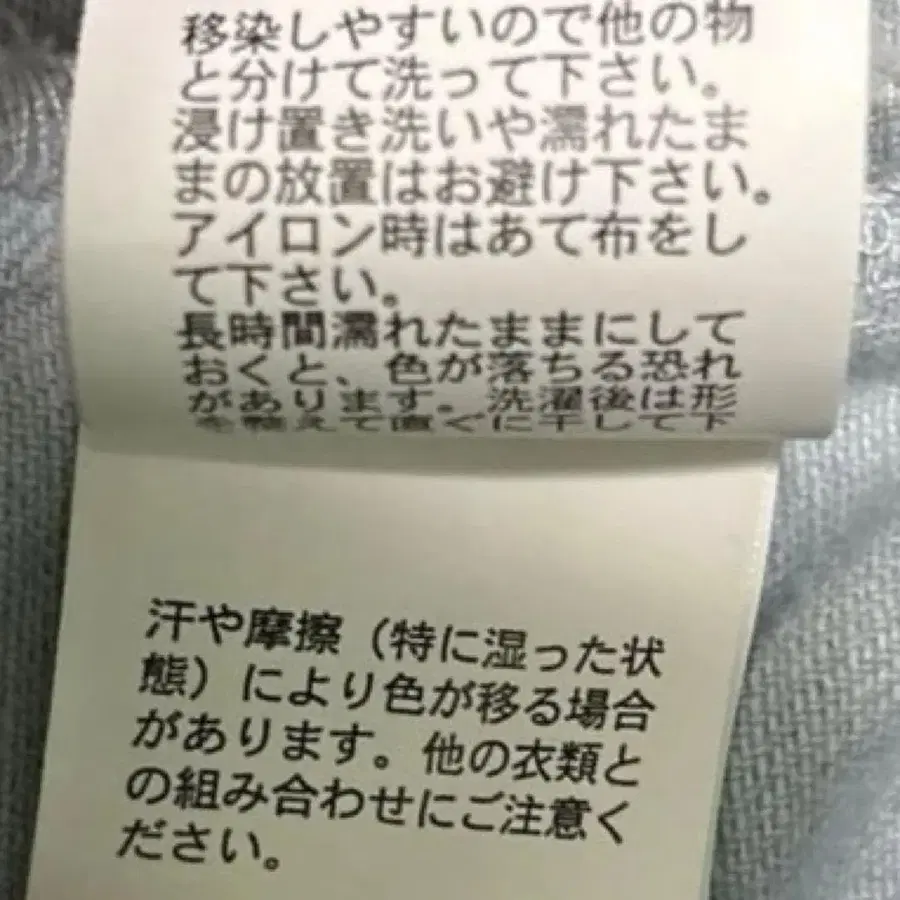 移染しやすいので他の物
と分けて洗って下さい。
浸け置き洗いや濡れたま
まの放置はお避け下さい。
アイロン時はあて布をし
て下さい。
長時間濡れたままにして
おくと、色が落ちる恐れ
があります。洗濯後は形
を整えて直ぐに干して下
汗や摩擦（特に湿った状
態）により色が移る場合
があります。他の衣類と
の組み合わせにご注意く
ださい。